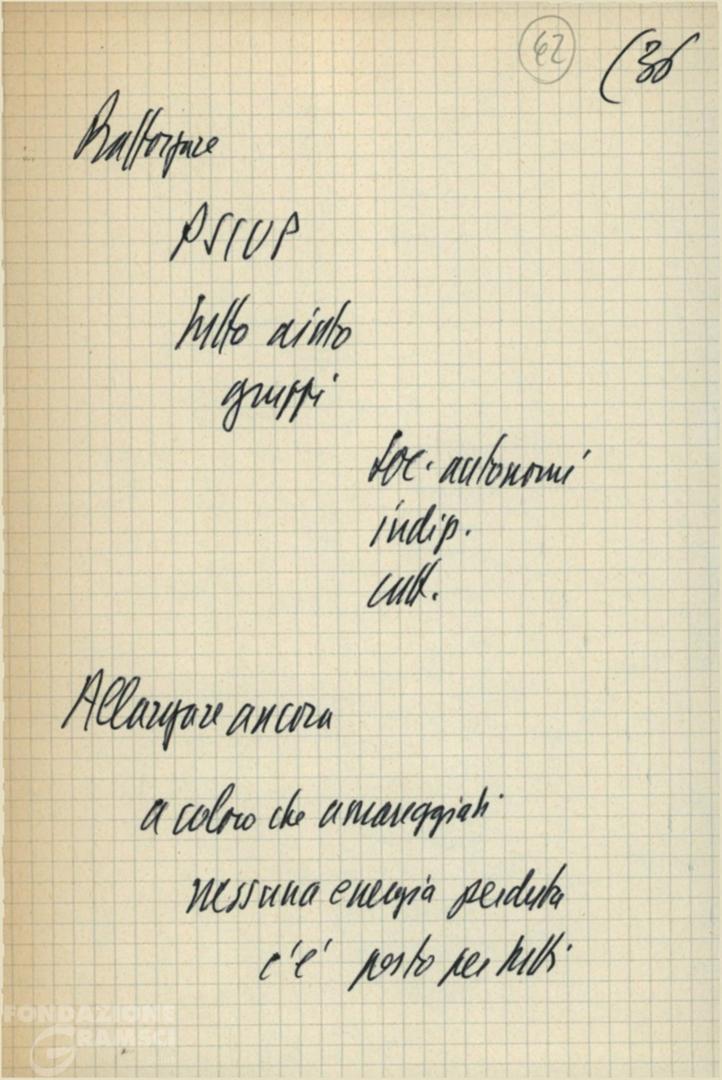 42
(36
Rafforzare
PSIUP
tutto aiuto
gruppi
soc. autonomi
indip.
catt.
Allargare ancora
a coloro che amareggiati
nessuna energia perduta
c'è posto per tutti
FONDAZIONE
GRAMSCI